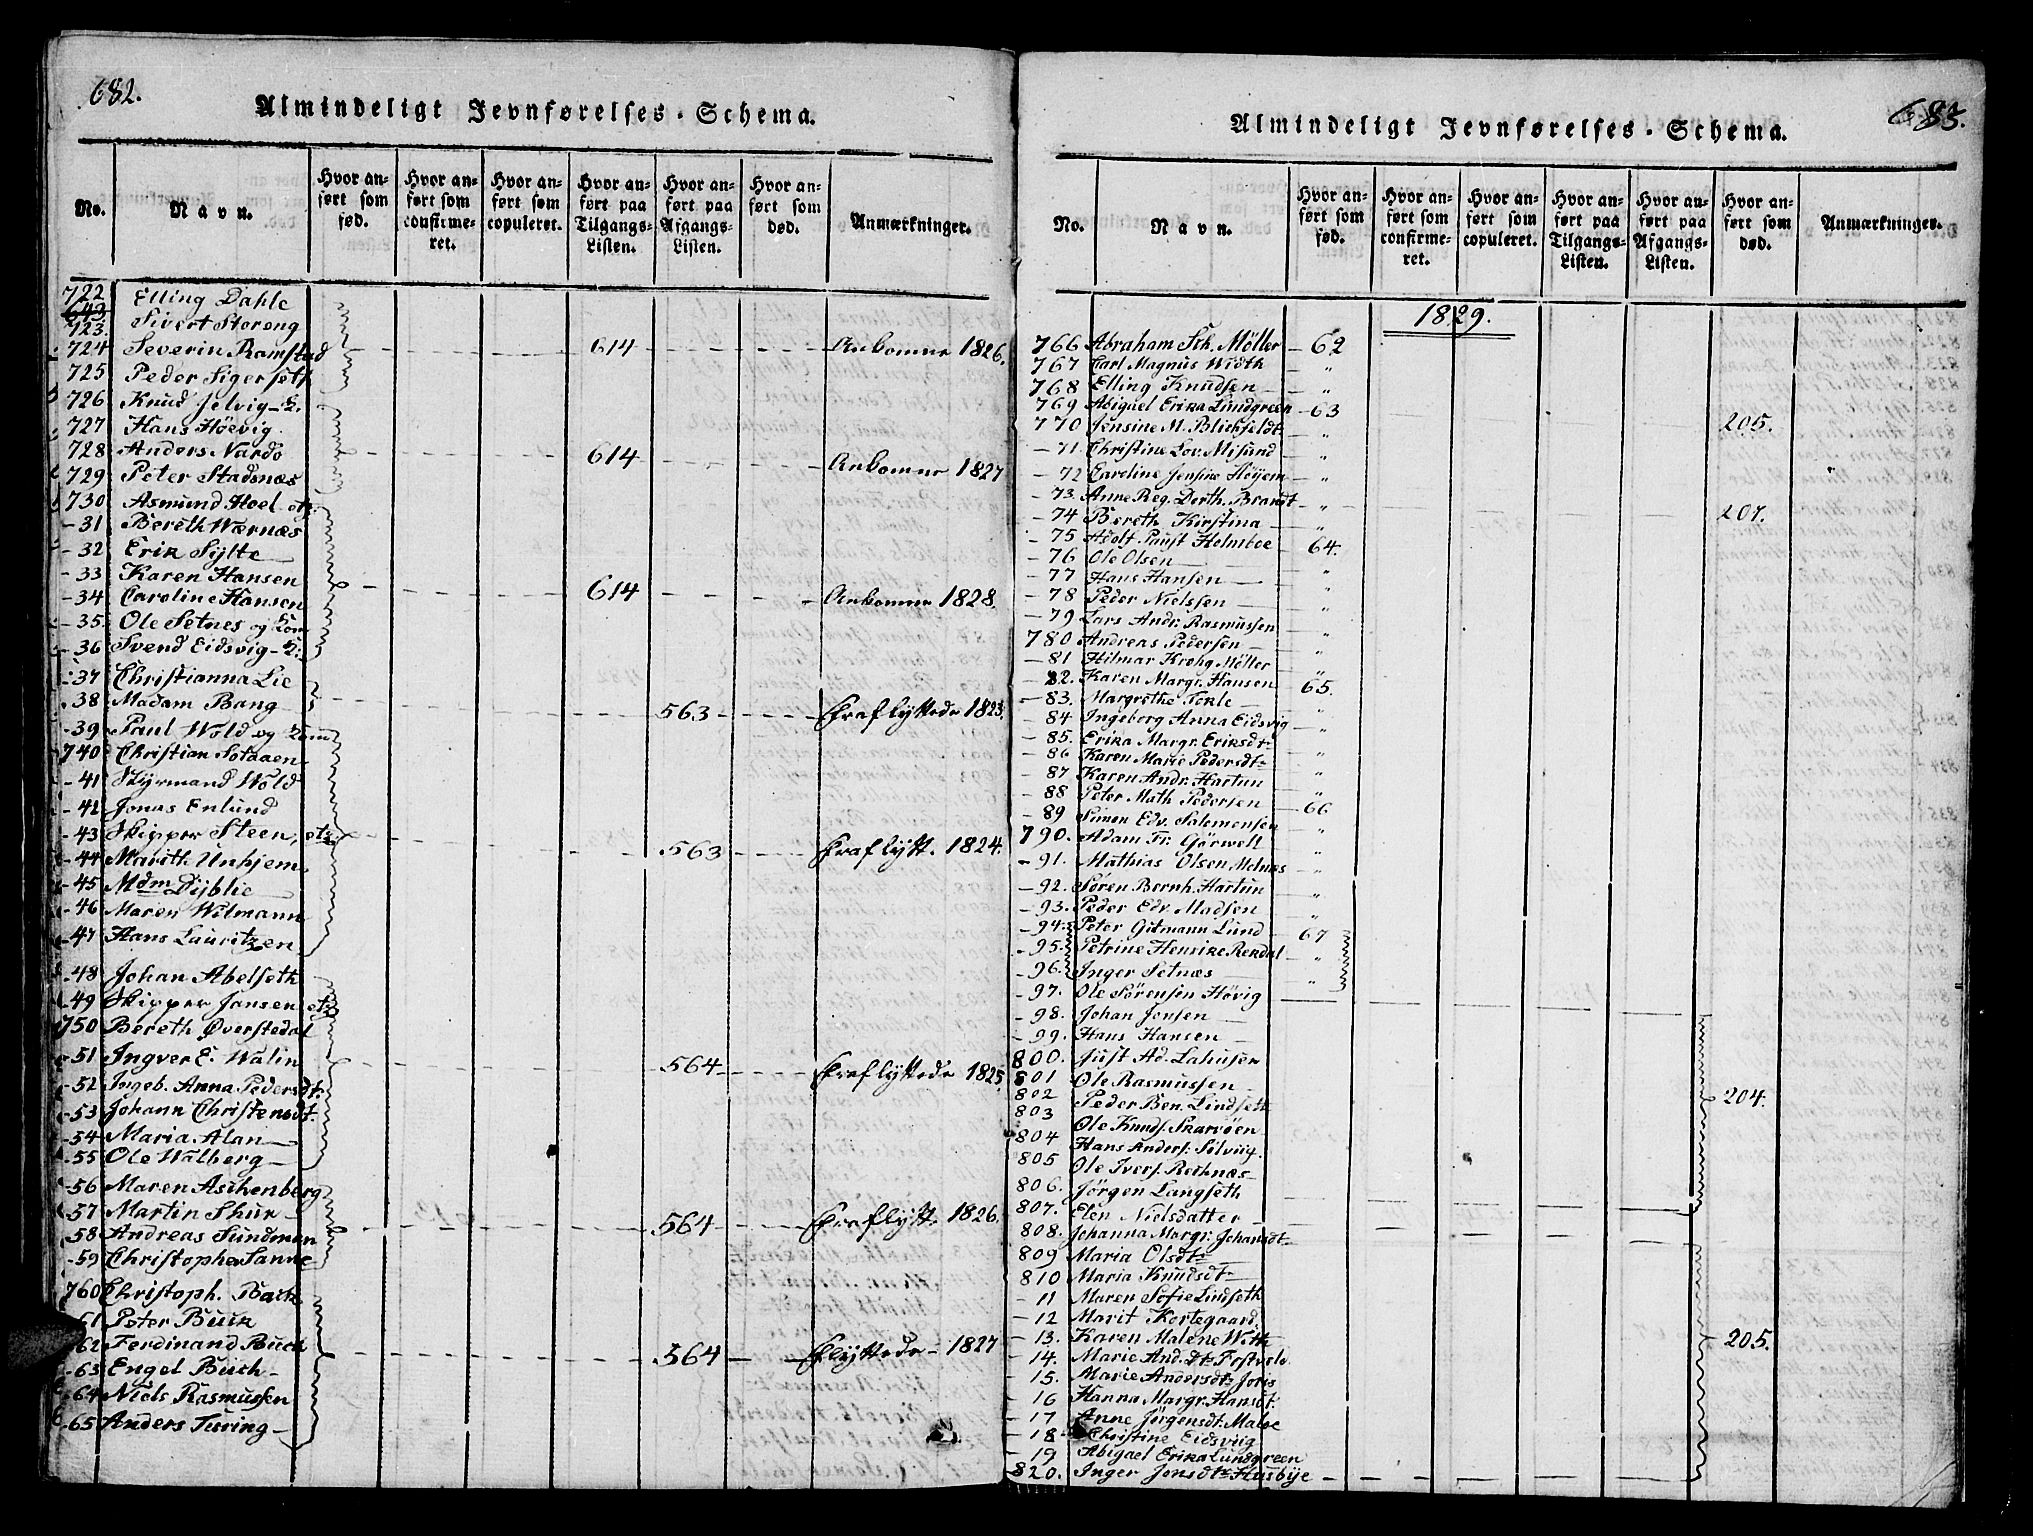 682.
Almindeligt Jevnførelses-Schema.
No.
Navn.
Hvor anført som fød.
Hvor anført som confirmeret.
Hvor anført som copuleret.
Hvor anført paa Tilgangs-Listen.
Hvor anført paa Afgangs-Listen.
Hvor anført som død.
Anmærkninger.
722 Elling Dahle
643.
723. Sivert Storeng
724 Severin Ramstad 614 Ankomne 1826.
725 Peder Sigerseth
726 Knud Jelvig
727 Hans Hoevig.
728 Anders Nardo 614 Ankomne 1827
729 Peter Stadsnæs
730 Asmund Hoel etz
-31 Bereth Wærnæs
-32 Erik Sylte
-33 Karen Hansen
-34 Caroline Hansen 614 Ankomne 1828.
-35. Ole Setnes og Kone
-36 Svend Eidsvig-K:
-37 Christianna Lie
-38 Madam Bang 563 Fraflyttede 1823.
-39 Paul Wold og Kone
740 Christian Solaaen
-41 Styrmand Wold
-42 Jonas Enlund
-43 Skipper Steen, etz:
-44 Marith Unhjem 563 Fraflytt. 1824.
-45 Mdm Dyblie
-46 Maren Wilmann
-47 Hans Lauritzen
-48 Johan Abelseth
-49 Skipper Jansen etz
750 Bereth Øverstedal
-51 Ingver E. Walin 564 Fraflyttede 1825.
-52 Ingeb. Anna Pedersdt.
-53 Johann Christensdt.
-54 Maria Alan
-55 Ole Walberg
-56 Maren Aschenberg
-57 Martin Shur
-58 Andreas Sundman 564 Fraflytt. 1826.
-59 Christopher Sanne
760 Christoph. Back
61 Peter Buck
62 Ferdinand Buch 564 Flyttede - 1827
-63 Engel Buch
-64 Niels Rasmussen
-65 Anders Turing
685.
Almindeligt Jevnførelses-Schema.
No.
Navn.
Hvor anført som fød.
Hvor anført som confirmeret.
Hvor anført som copuleret.
Hvor anført paa Tilgangs-Listen.
Hvor anført paa Afgangs-Listen.
Hvor anført som død.
Anmærkninger.
1829.
766 Abraham Sch. Möller 62
767 Carl Magnus Width "
768 Elling Knudsen "
769 Abigael Erika Lundgreen 63
770 Jensine M. Blichfeldt " 205.
-71 Christine Lov. Misund "
-72 Caroline Jensine Höyem "
-73. Anne Reg. Dorth. Brandt "
-74 Bereth Kirstina " 207.
-75 Adolf Paust Holmboe 64.
-76 Ole Olsen "
-77 Hans Hansen "
-78 Peder Nielssen "
-79 Lars Andr. Rasmussen "
780 Andreas Pedersen "
-81 Hilmar Krohg Möller "
-82. Karen Margr. Hansen 65.
-83. Margrethe Tokle "
-84 Ingeborg Anna Eidsvig "
-85. Erika Margr. Eriksdt. "
-86 Karen Marie Pedersdt. "
-87 Karen Andr. Hartun "
-88 Peter Math Pedersen 66
-89 Simon Edv. Salomonsen "
790. Adam Fr. Görwell "
-91. Mathias Olsen Melnæs "
-92. Sören Bernh. Hartun "
-93. Peder Edv. Madsen "
-94. Peter Gutmann Lund 67
-95. Petrine Henrike Rekdal "
-96. Inger Setnæs "
-97. Ole Sörensen Hövig
-98. Johan Jonsen
-99. Hans Hansen
800. Just Ad. Lahusen
801 Ole Rasmussen
802 Peder Ben. Lindseth 204.
803 Ole Knuds. Skarvöen
804 Hans Anders. Sölviig.
805 Ole Ivers. Reknæs
806. Jörgen Langseth
807. Elen Nielsdatter
808. Johanna Margr. Johansdt.
809 Maria Olsdt.
810 Maria Knudsdt.
-11 Maren Sofie Lindseth
-12 Marit Kortegaard
-13. Karen Malene With 205.
-14. Marie And. Dt.
-15. Marie Andersdt. Joris
-16 Hanna Margr. Hansdt.
-17 Anne Jörgensdt. Maloe
-18 Christine Eidsviig
-19 Abigael Erika Lundgreen
820. Inger Jonsdt. Husbye